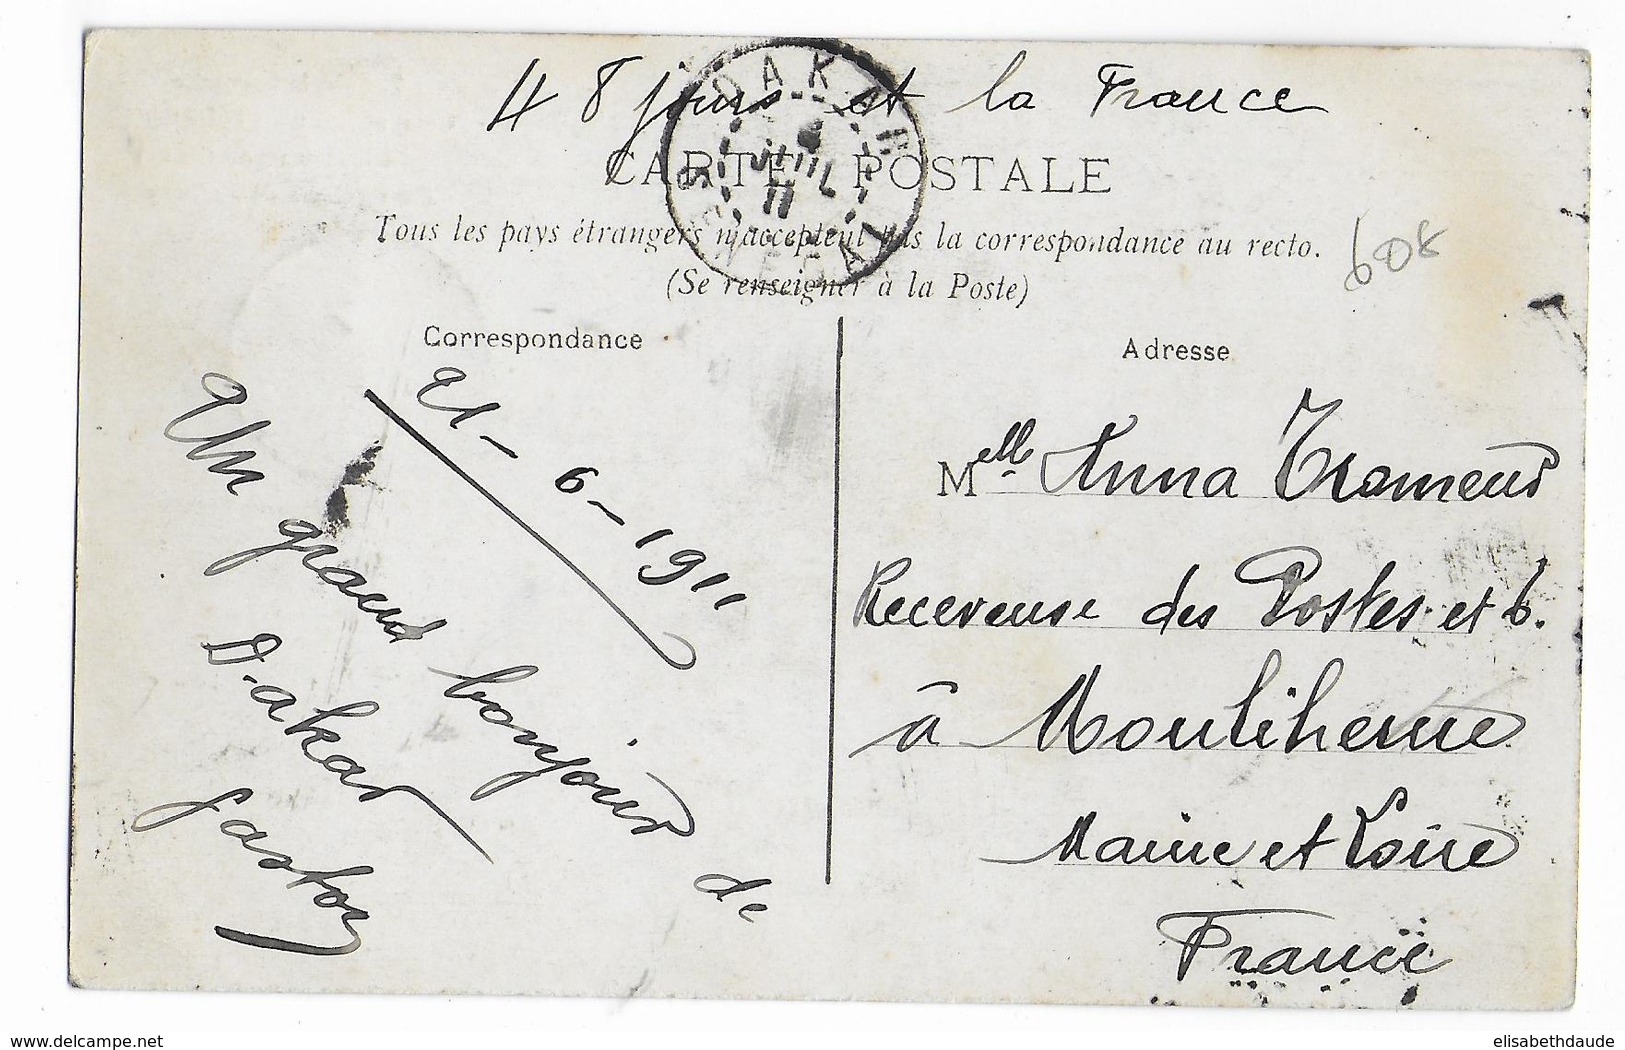 48 jours et la France
CARTE POSTALE
Tous les pays étrangers n'acceptent pas la correspondance au recto.
(Se renseigner à la Poste)
DAKAR
JUIL
11
SENEGAL
608
Correspondance
21-6-1911
Un grand bonjour de
Dakar
Gaston
Adresse
Melle Anna Trameur
Receveuse des Postes et t.
à Mouliherne
Maine et Loire
France
www.delcampe.net
elisabethdaude